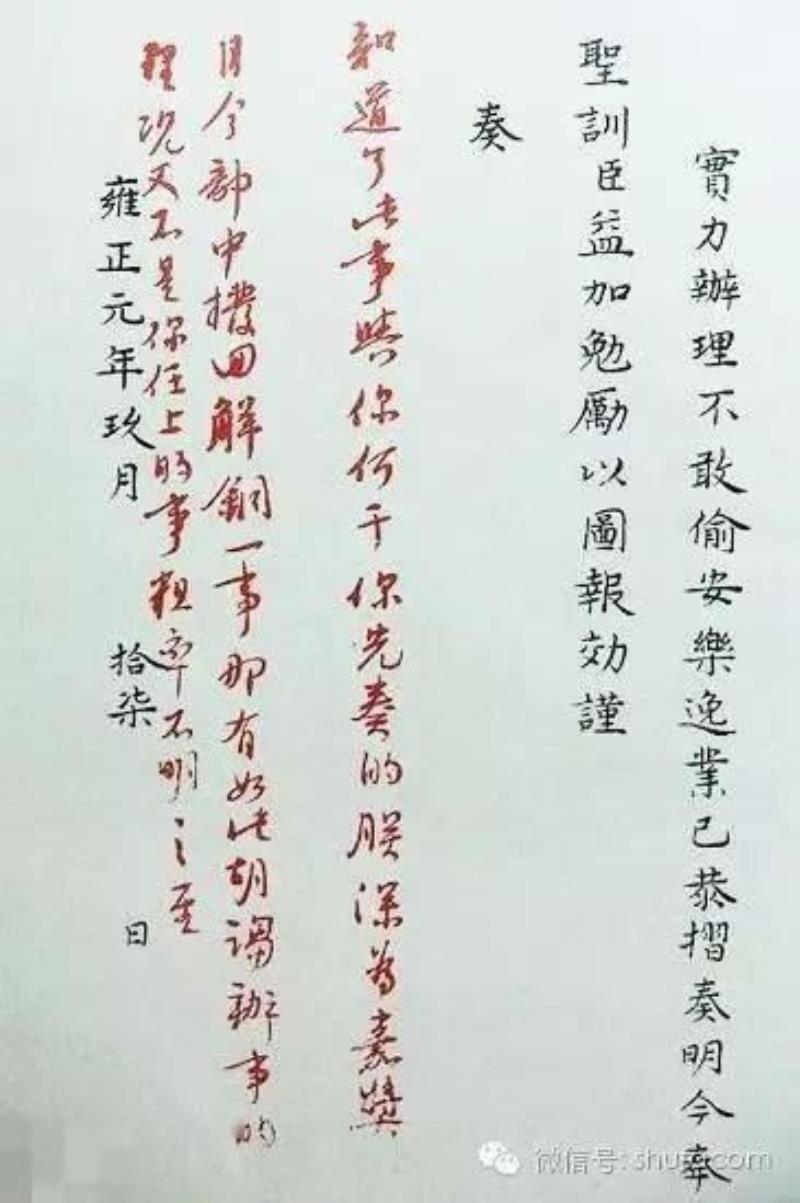 實力辦理不敢偷安樂逸業已恭摺奏明今奉
聖訓臣益加勉勵以圖報効謹
奏
知道了此事與你何干你先奏的朕深為嘉奬
目今部中撥回解銅一事那有如此胡謅辦事的
理况又不是你任上的事粗率不明之至
雍正元年玖月 拾柒 日
微信号: